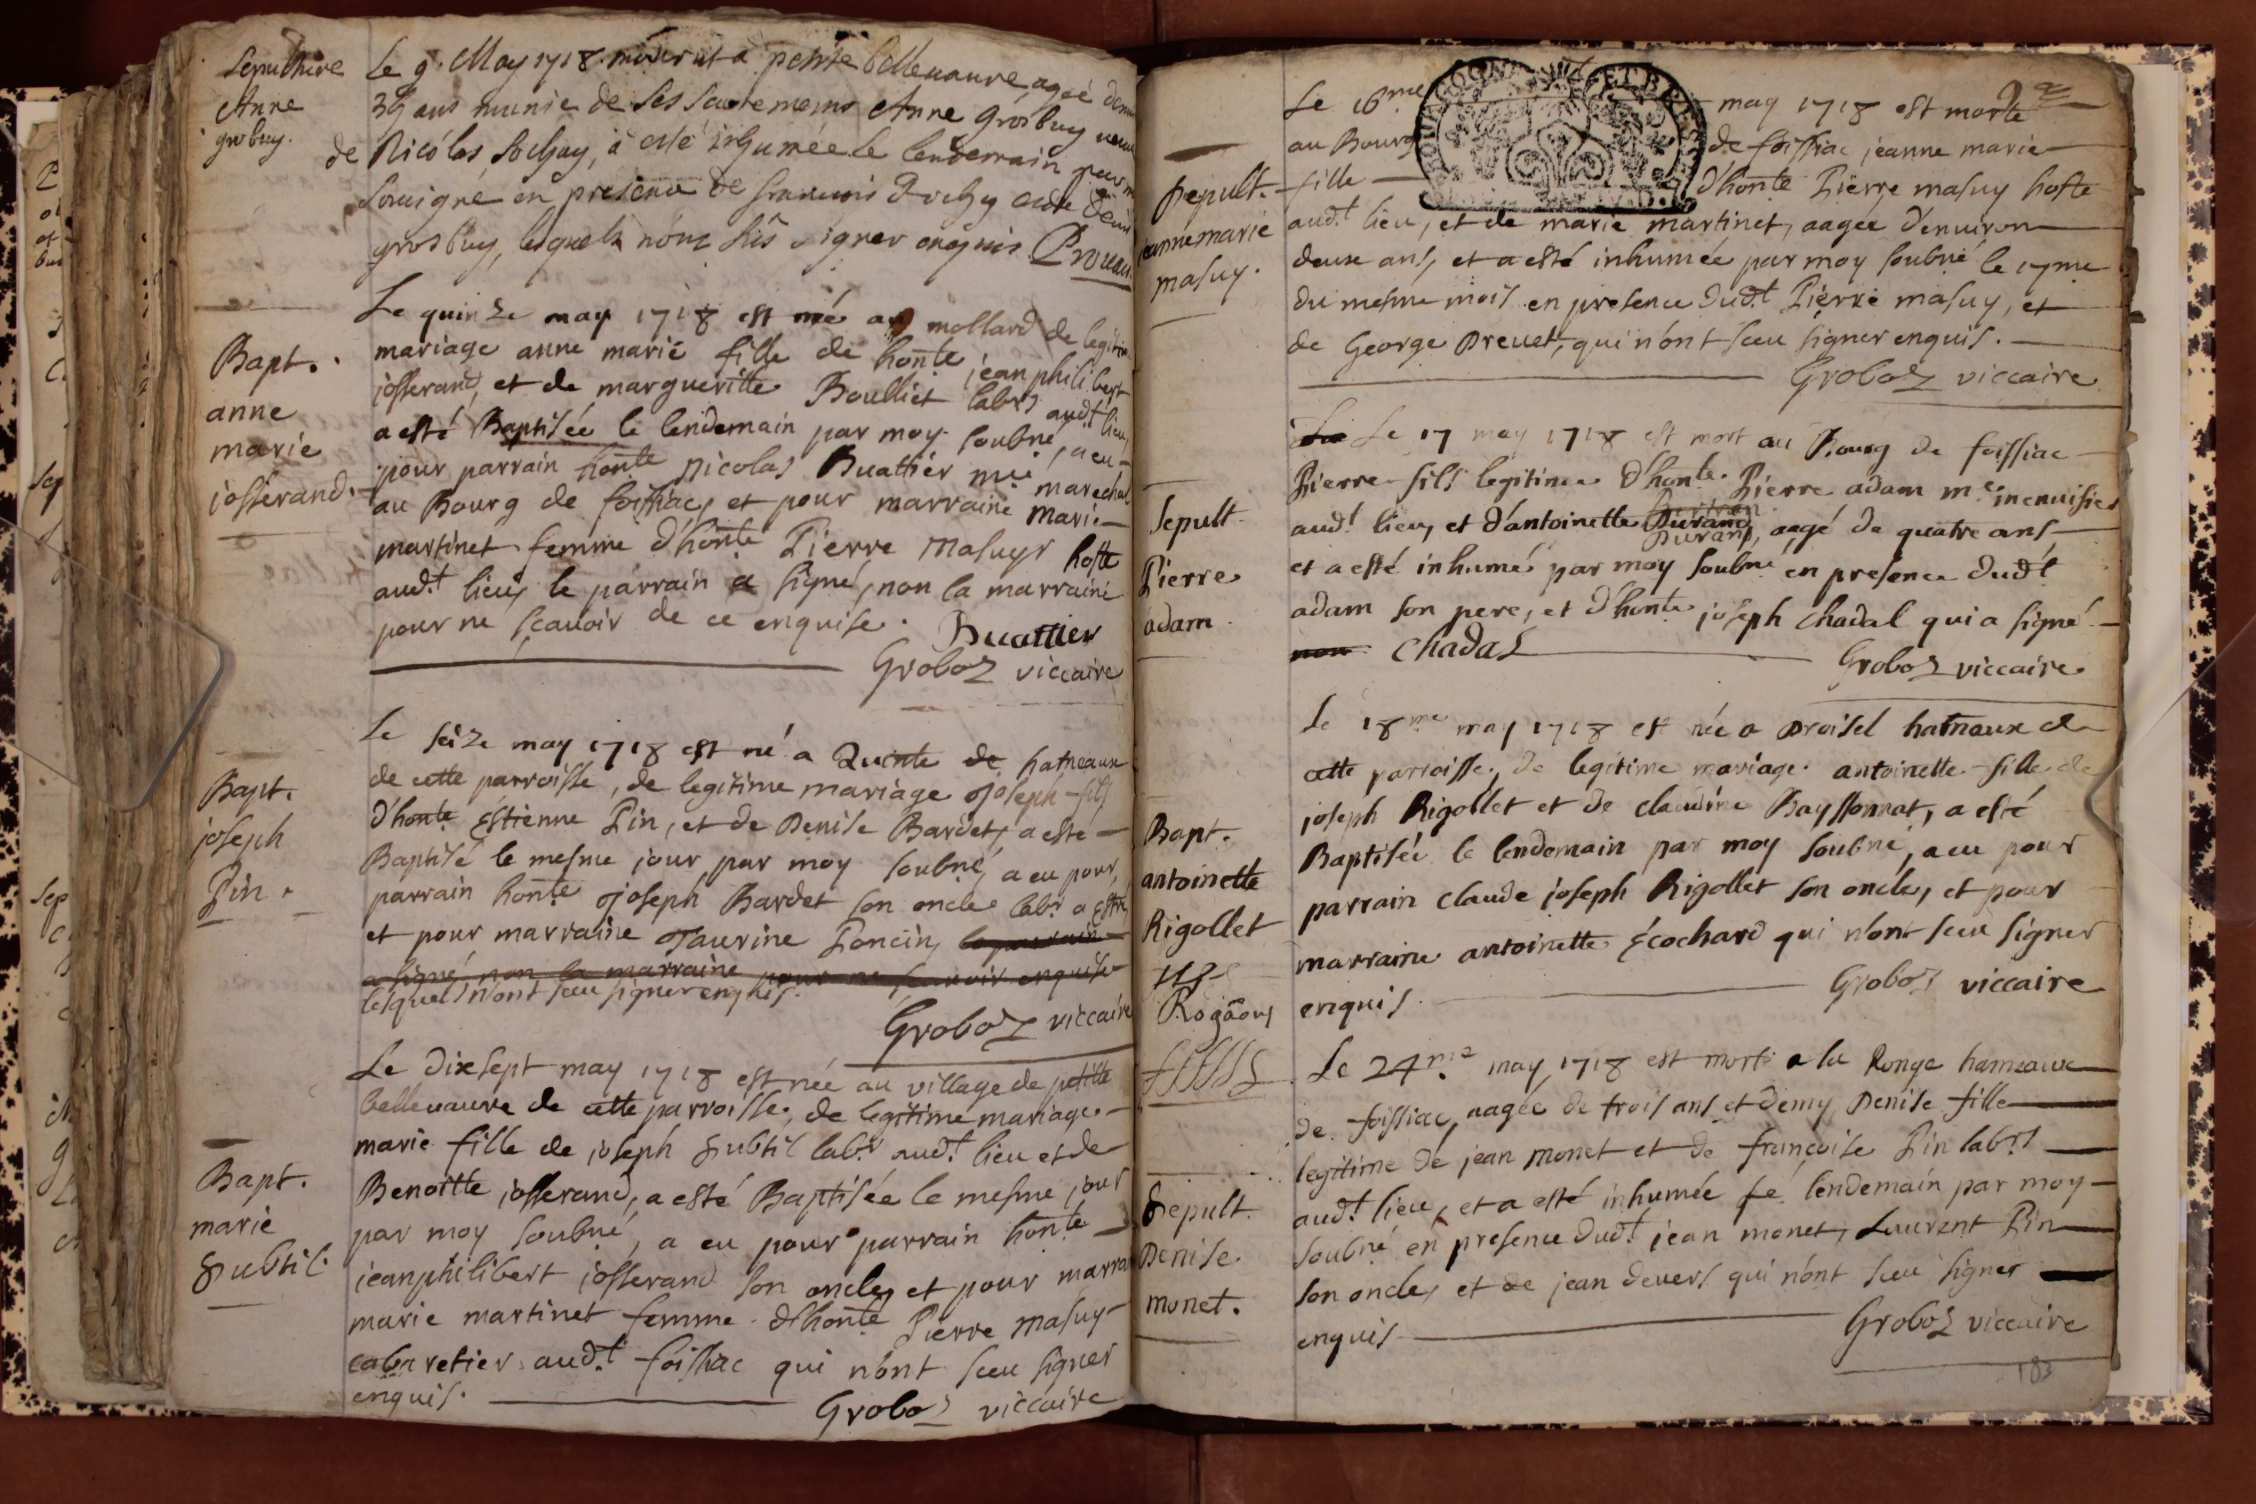 Sepulture
Anne
grobuy.
Le 9. May 1718 mourut a petite bellevavre, agée
39 ans munie de ses sacremens Anne grosbuy
de Nicolas Sochay, a esté inhumée le lendemain par
soussigné en presence de
grosbuy, lesquels n'ont sus signer enquis
Bapt.
anne
marie
josserand.
Le quinze may 1718 est née au mollard de legitime
mariage anne marie fille de honte jean philibert
josserand, et de margueritte Boulliet labrs audt lieu,
a esté Baptisée le lendemain par moy soubné, a eu
pour parrain honte nicolas Buattier me marechal
au Bourg de foissiac, et pour marraine marie
martinet femme d'honte Pierre masuyr hoste
audt lieu, le parrain a signé, non la marraine
pour ne sçavoir de ce enquise. Buattier
Groboz viccaire
Bapt.
joseph
Pin.
Le seize may 1718 est né a Quinte de hameaux
de cette parroisse, de legitime mariage joseph fils
d'honte Estienne Pin, et de Denise Bardet, a esté
Baptisé le mesme jour par moy soubné, a eu pour
parrain honte joseph Bardet son oncle labr a
et pour marraine Taurine Poncin, le parrain
a signé, non la marraine pour ne scavoir enquise
lesquels n'ont sceu signer enquis.
Groboz viccaire
Bapt.
marie
subtil.
Le dixsept may 1718 est née au village de petitte
bellevavre de cette parroisse, de legitime mariage
marie fille de joseph subtil labr audt lieu et de
Benoitte josserand, a esté Baptisée le mesme jour
par moy soubné, a eu pour parrain honte
jeanphilibert josserand son oncle, et pour marra
marie martinet femme d'honte Pierre masuy
cabaretier audt foissiac qui n'ont sceu signer
enquis. Groboz viccaire
Sepult.
jeanne marie
masuy.
Le 16me may 1718 est morte
au Bourg de foissiac jeanne marie
fille d'honte Pierre masuy hoste
audt lieu, et de marie martinet, aagée d'environ
deux ans, et a esté inhumée par moy soubné le 17me
du mesme mois en presence dudt Pierre masuy, et
de George Brevet, qui n'ont sceu signer enquis.
Groboz viccaire
Sepult.
Pierre
adam.
Le 17 may 1718 est mort au Bourg de foissiac
Pierre fils legitime d'honte Pierre adam me menuisier
audt lieu, et d'antoinette Durand, aagé de quatre ans
Durand
et a esté inhumé par moy soubné en presence dudt
adam son pere, et d'honte joseph chadal qui a signé
non chadal
Groboz viccaire
Bapt.
antoinette
Rigollet
Le 18me may 1718 est née a Droisel hameaux de
cette parroisse, de legitime mariage antoinette fille de
joseph Rigollet et de claudine Bayssonnat, a esté
Baptisée le lendemain par moy soubné, a eu pour
parrain claude joseph Rigollet son oncle, et pour
marraine antoinette Ecochard qui n'ont sceu signer
enquis. Groboz viccaire
Sepult.
Denise
monet.
Le 24me may 1718 est morte a la Ronge hameaux
de foissiac, aagée de trois ans et demy Denise fille
legitime de jean monet et de françoise Pin labrs
audt lieu, et a esté inhumée le lendemain par moy
soubné en presence dudt jean monet, Laurent Pin
son oncle, et de jean devers qui n'ont sceu signer
enquis
Groboz viccaire
183